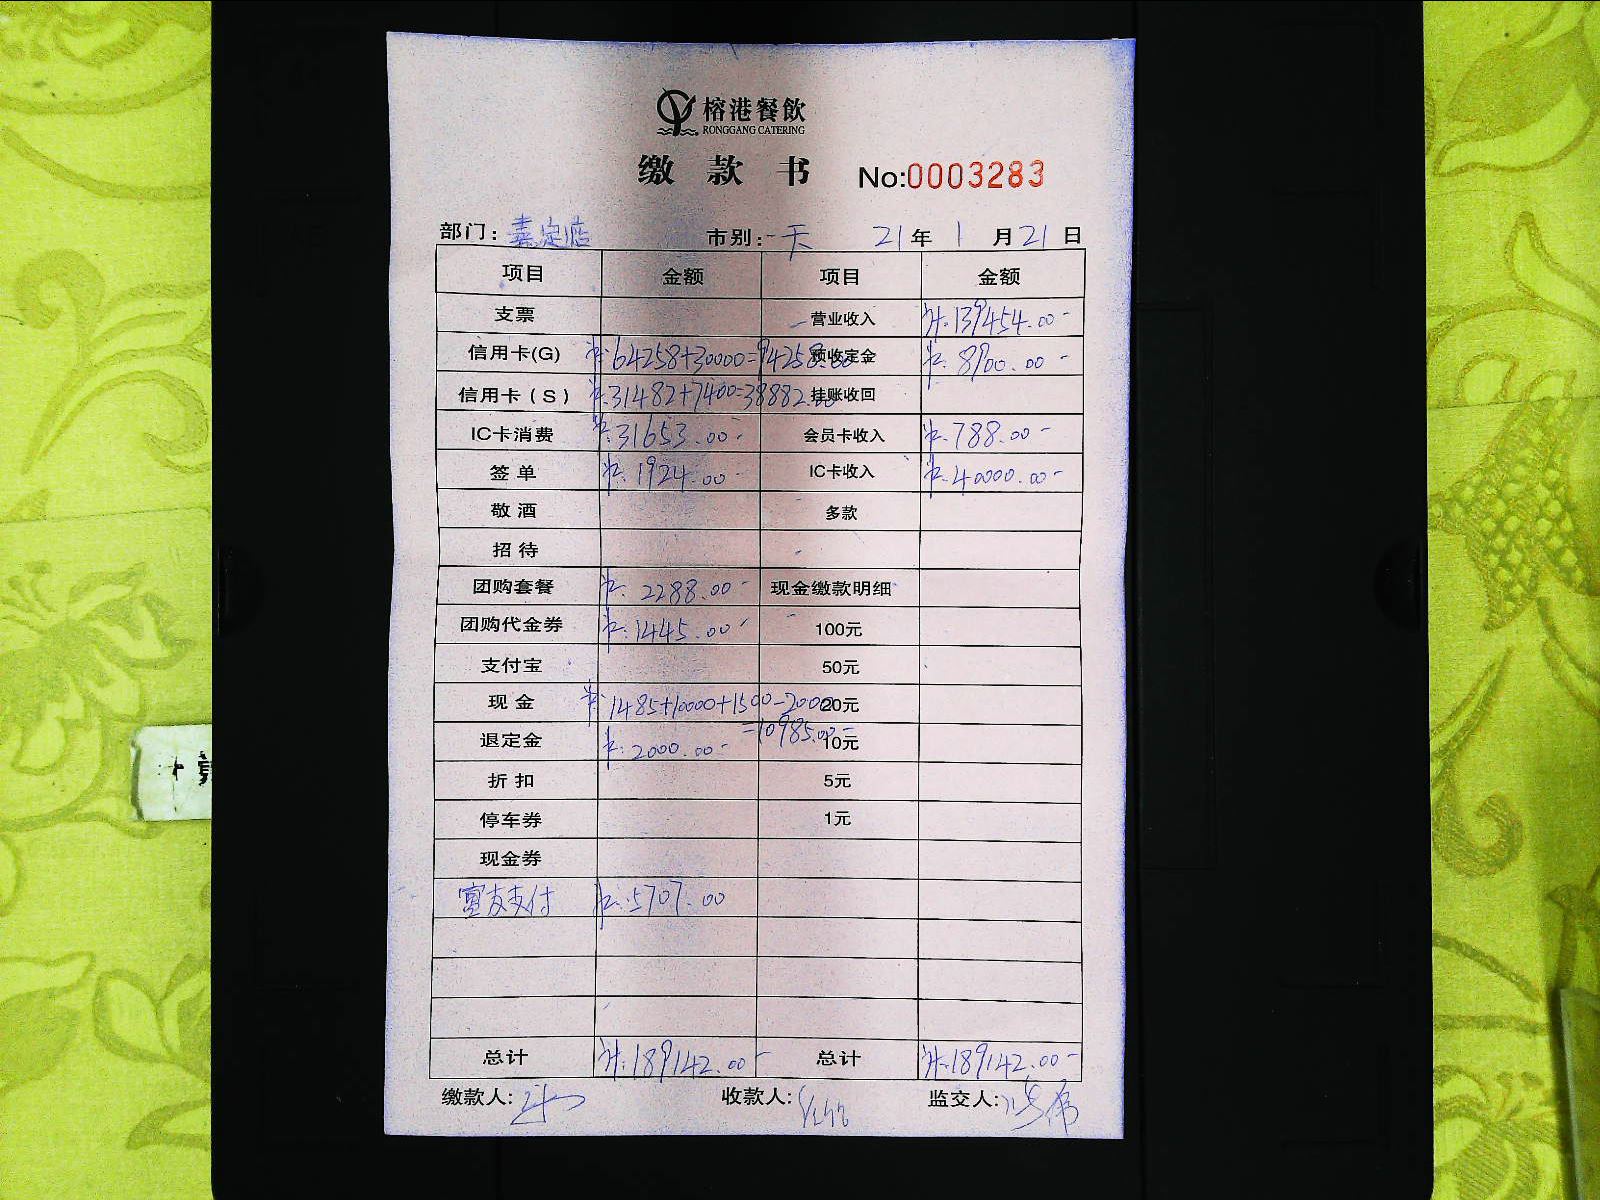 榕港餐飲
RONGGANG CATERING
缴款书 No:0003283
部门: 嘉定店 市别: 一天 21年1月21日
项目 金额 项目 金额
支票 营业收入 计:139454.00-
信用卡(G) 64258+30000=94258.00 预收定金 8900.00-
信用卡(S) 31482+7400=38882.00 挂账收回
IC卡消费 31653.00- 会员卡收入 788.00-
签单 1924.00- IC卡收入 40000.00-
敬酒 多款
招待
团购套餐 2288.00- 现金缴款明细
团购代金券 1445.00- 100元
支付宝 50元
现金 1485+10000+1500-2000 20元
=10985.00-
退定金 2000.00- 10元
折扣 5元
停车券 1元
现金券
富友支付 5707.00
总计 计:189142.00- 总计 计:189142.00-
缴款人: 收款人: 监交人: